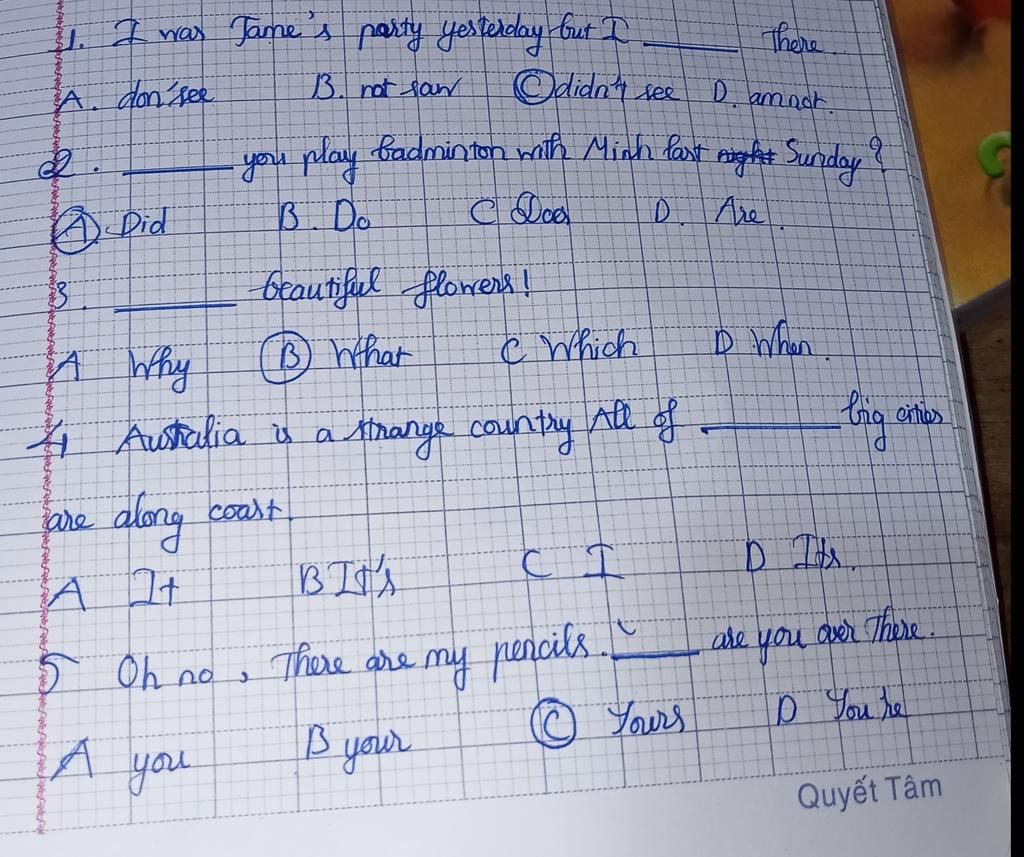 1. I was Jame's party yesterday but I ______ there.
A. don'see B. not saw C didn't see D. am not.
2. ______ you play badminton with Minh last night Sunday?
A. Did B. Do C Does D. Are.
3. ______ beautiful flowers!
A Why B What C Which D When.
4 Australia is a strange country All of ______ big cities
are along coast.
A It B It's C I D Its.
5 Oh no, There are my pencils. ______ are you over There.
A you B your C Yours D You're
Quyết Tâm